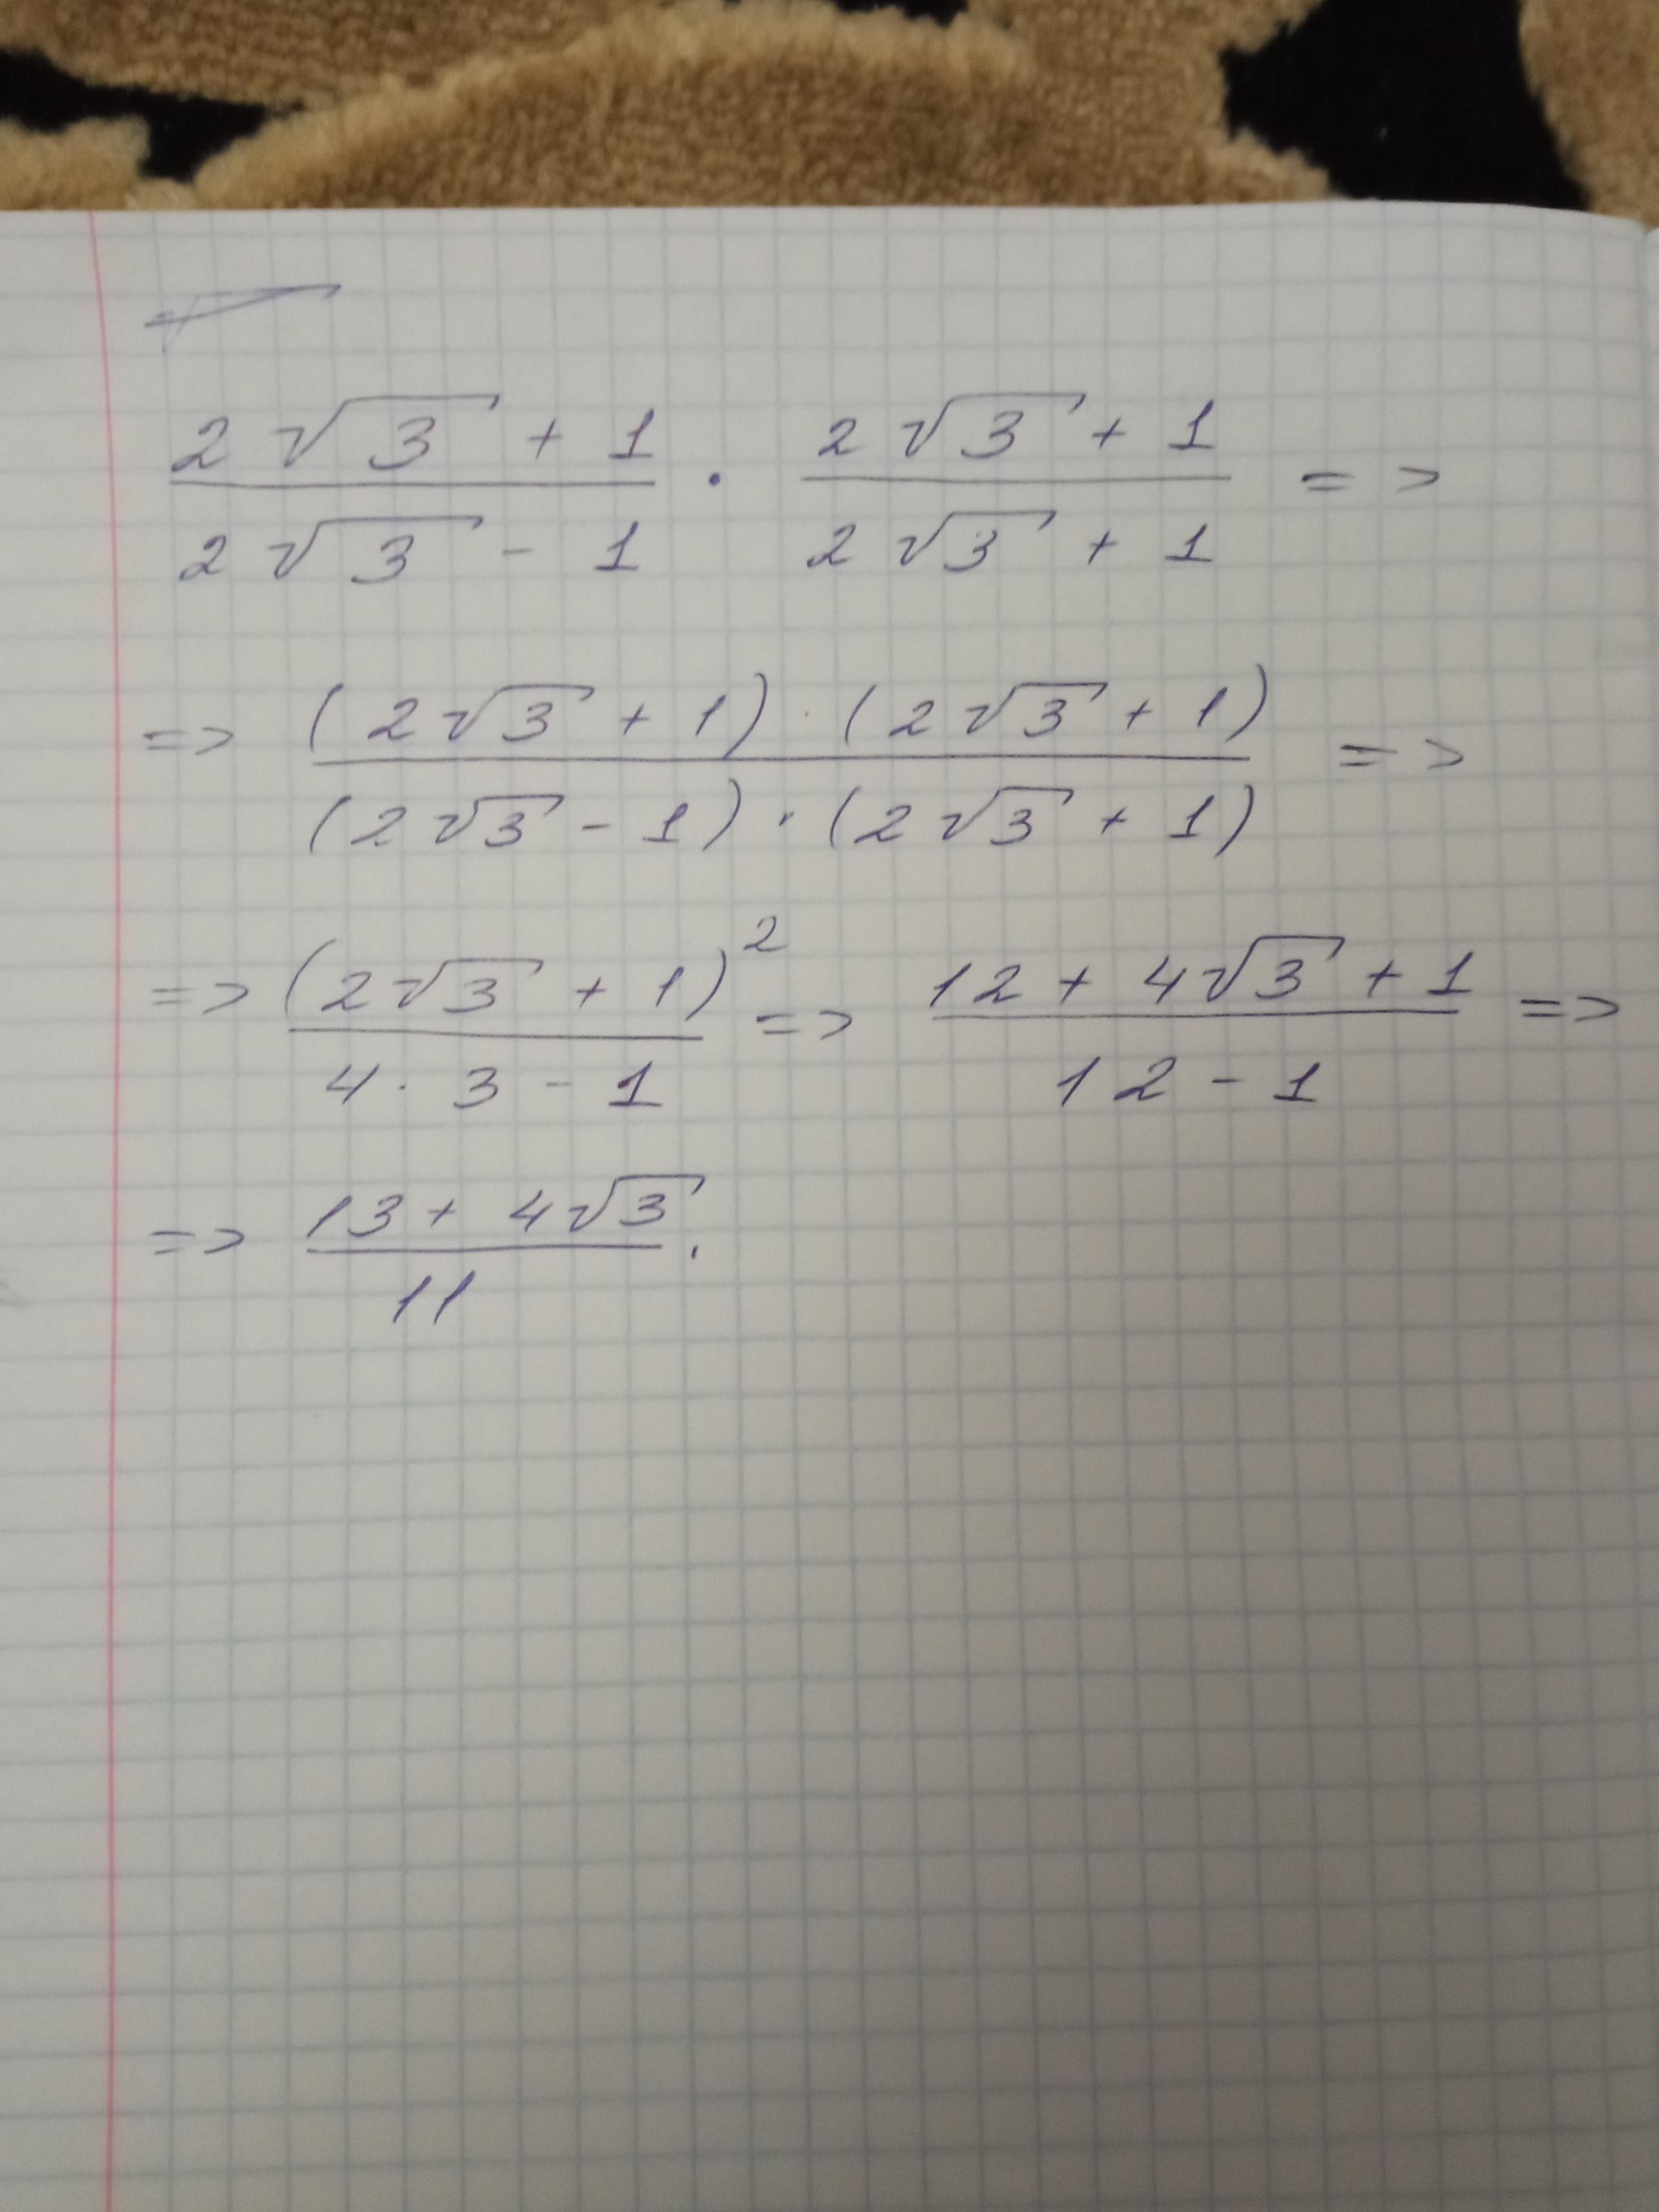 (2√3 + 1)/(2√3 - 1) · (2√3 + 1)/(2√3 + 1) =>
=> ((2√3 + 1) · (2√3 + 1))/((2√3 - 1) · (2√3 + 1)) =>
=> (2√3 + 1)²/(4 · 3 - 1) => (12 + 4√3 + 1)/(12 - 1) =>
=> (13 + 4√3)/11 .